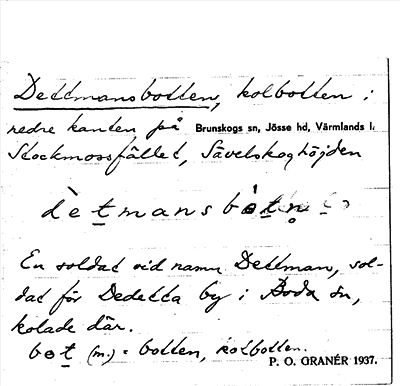 Dettmansbotten, kolbotten i
nedre kanten på Brunskogs sn, Jösse hd, Värmlands l.
Stockmossfället, Sävelskoghöjden
dètmansbòtn̥
En soldat vid namn Dettman, sol-
dat för Dedetta by i Boda sn,
kolade där.
bot (m.) = botten, kolbotten.
P. O. GRANÉR 1937.